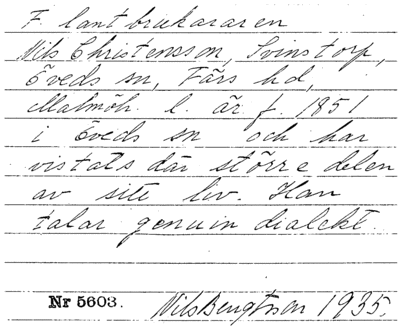 F. lantbrukararen
Nils Christensson, Svinstorp,
Öveds sn, Färs hd,
Malmöh. l. är f. 1851
i Öveds sn och har
vistats där större delen
av sitt liv. Han
talar genuin dialekt.
Nr 5603. Nils Bengtsson 1935.